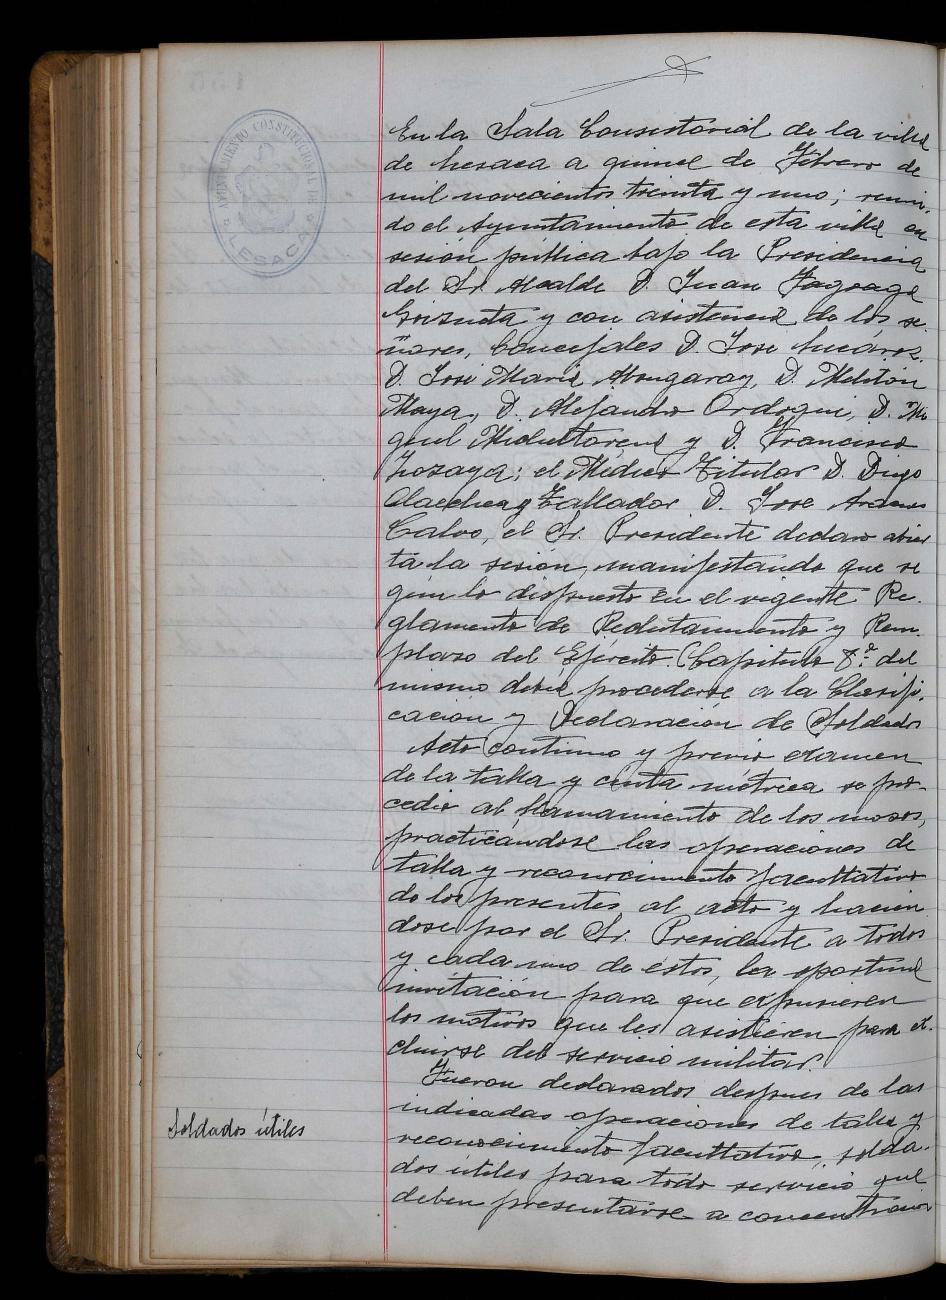 AYUNTAMIENTO CONSTITUCIONAL DE
LESACA
En la Sala Consistorial de la villa
de Lesaca a quince de Febrero de
mil novecientos treinta y uno; reuni-
do el Ayuntamiento de esta villa en
sesión pública bajo la Presidencia
del Sr. Alcalde D. Juan Fagoaga
Goizueta y con asistencia de los se-
ñores, Concejales D. José
D. José María Mongaray, D. Melitón
Maya, D. Alejandro Ordoqui, D. Mi-
guel Micheltorena y D. Francisco
Zozaya; el Médico Titular D. Diego
Olaechea y Tallador D. José
Calvo, el Sr. Presidente declaro abier
ta la sesión, manifestando que se
gún lo dispuesto en el vigente Re-
glamento de Reclutamiento y Rem-
plazo del Ejército (Capitulo 8º. del
mismo debia procederse a la Clasifi-
cación y Declaración de Soldados
Acto continuo y previo examen
de la talla y cinta métrica se pro-
cedio al llamamiento de los mozos,
practicándose las operaciones de
talla y reconocimiento facultativo
de los presentes al acto y hacien
dose por el Sr. Presidente a todos
y cada uno de éstos, la oportuna
invitación para que expusieren
los motivos que les asistieren para ex-
cluirse del servicio militar.
Fueron declarados despues de las
indicadas operaciones de talla y
Soldados útiles
reconocimiento facultativo, solda-
dos útiles para todo servicio que
deben presentarse a concentración